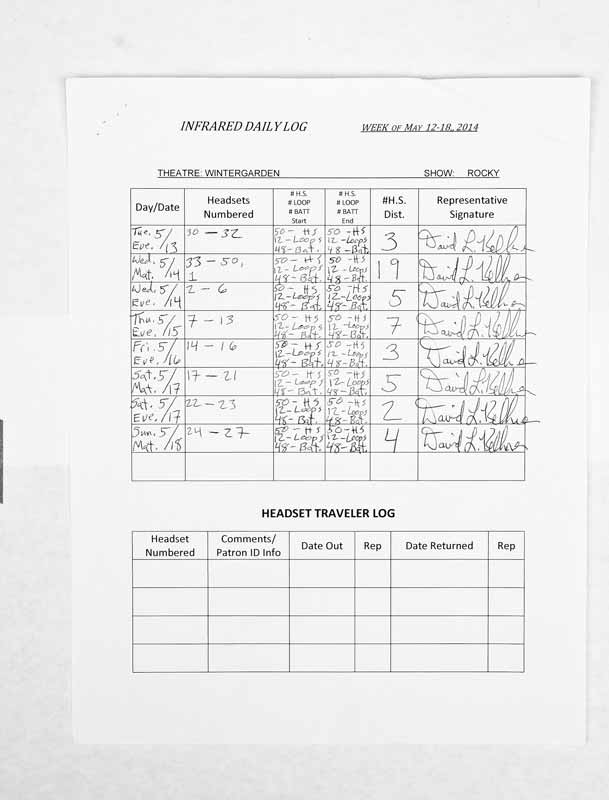 INFRARED DAILY LOG WEEK OF MAY 12-18, 2014
THEATRE: WINTERGARDEN SHOW: ROCKY
Day/Date
Headsets
Numbered
# H.S.
# LOOP
# BATT
Start
# H.S.
# LOOP
# BATT
End
#H.S.
Dist.
Representative
Signature
Tue. 5/
Eve. /13
30 – 32
50 – HS
12 – Loops
48 – Bat.
50 – HS
12 – Loops
48 – Bat.
3
David L. Kellner
Wed. 5/
Mat. /14
33 – 50,
1
50 – HS
12 – Loops
48 – Bat.
50 – HS
12 – Loops
48 – Bat.
19
David L. Kellner
Wed. 5/
Eve. /14
2 – 6
50 – HS
12 – Loops
48 – Bat.
50 – HS
12 – Loops
48 – Bat.
5
David L. Kellner
Thu. 5/
Eve. /15
7 – 13
50 – HS
12 – Loops
48 – Bat.
50 – HS
12 – Loops
48 – Bat.
7
David L. Kellner
Fri. 5/
Eve. /16
14 – 16
50 – HS
12 – Loops
48 – Bat.
50 – HS
12 – Loops
48 – Bat.
3
David L. Kellner
Sat. 5/
Mat. /17
17 – 21
50 – HS
12 – Loops
48 – Bat.
50 – HS
12 – Loops
48 – Bat.
5
David L. Kellner
Sat. 5/
Eve. /17
22 – 23
50 – HS
12 – Loops
48 – Bat.
50 – HS
12 – Loops
48 – Bat.
2
David L. Kellner
Sun. 5/
Mat. /18
24 – 27
50 – HS
12 – Loops
48 – Bat.
50 – HS
12 – Loops
48 – Bat.
4
David L. Kellner
HEADSET TRAVELER LOG
Headset
Numbered
Comments/
Patron ID Info
Date Out
Rep
Date Returned
Rep